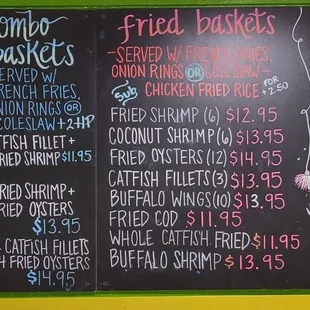 ombo
baskets
SERVED W/
FRENCH FRIES,
ONION RINGS OR
COLESLAW + 2-HP
CATFISH FILLET +
FRIED SHRIMP $11.95
FRIED SHRIMP +
FRIED OYSTERS
$13.95
CATFISH FILLETS
4 FRIED OYSTERS
$14.95
fried baskets
-SERVED W/ FRENCH FRIES,
ONION RINGS OR COLESLAW-
Sub CHICKEN FRIED RICE FOR +2.50
FRIED SHRIMP (6) $12.95
COCONUT SHRIMP (6) $13.95
FRIED OYSTERS (12) $14.95
CATFISH FILLETS (3) $13.95
BUFFALO WINGS (10) $13.95
FRIED COD $11.95
WHOLE CATFISH FRIED $11.95
BUFFALO SHRIMP $13.95